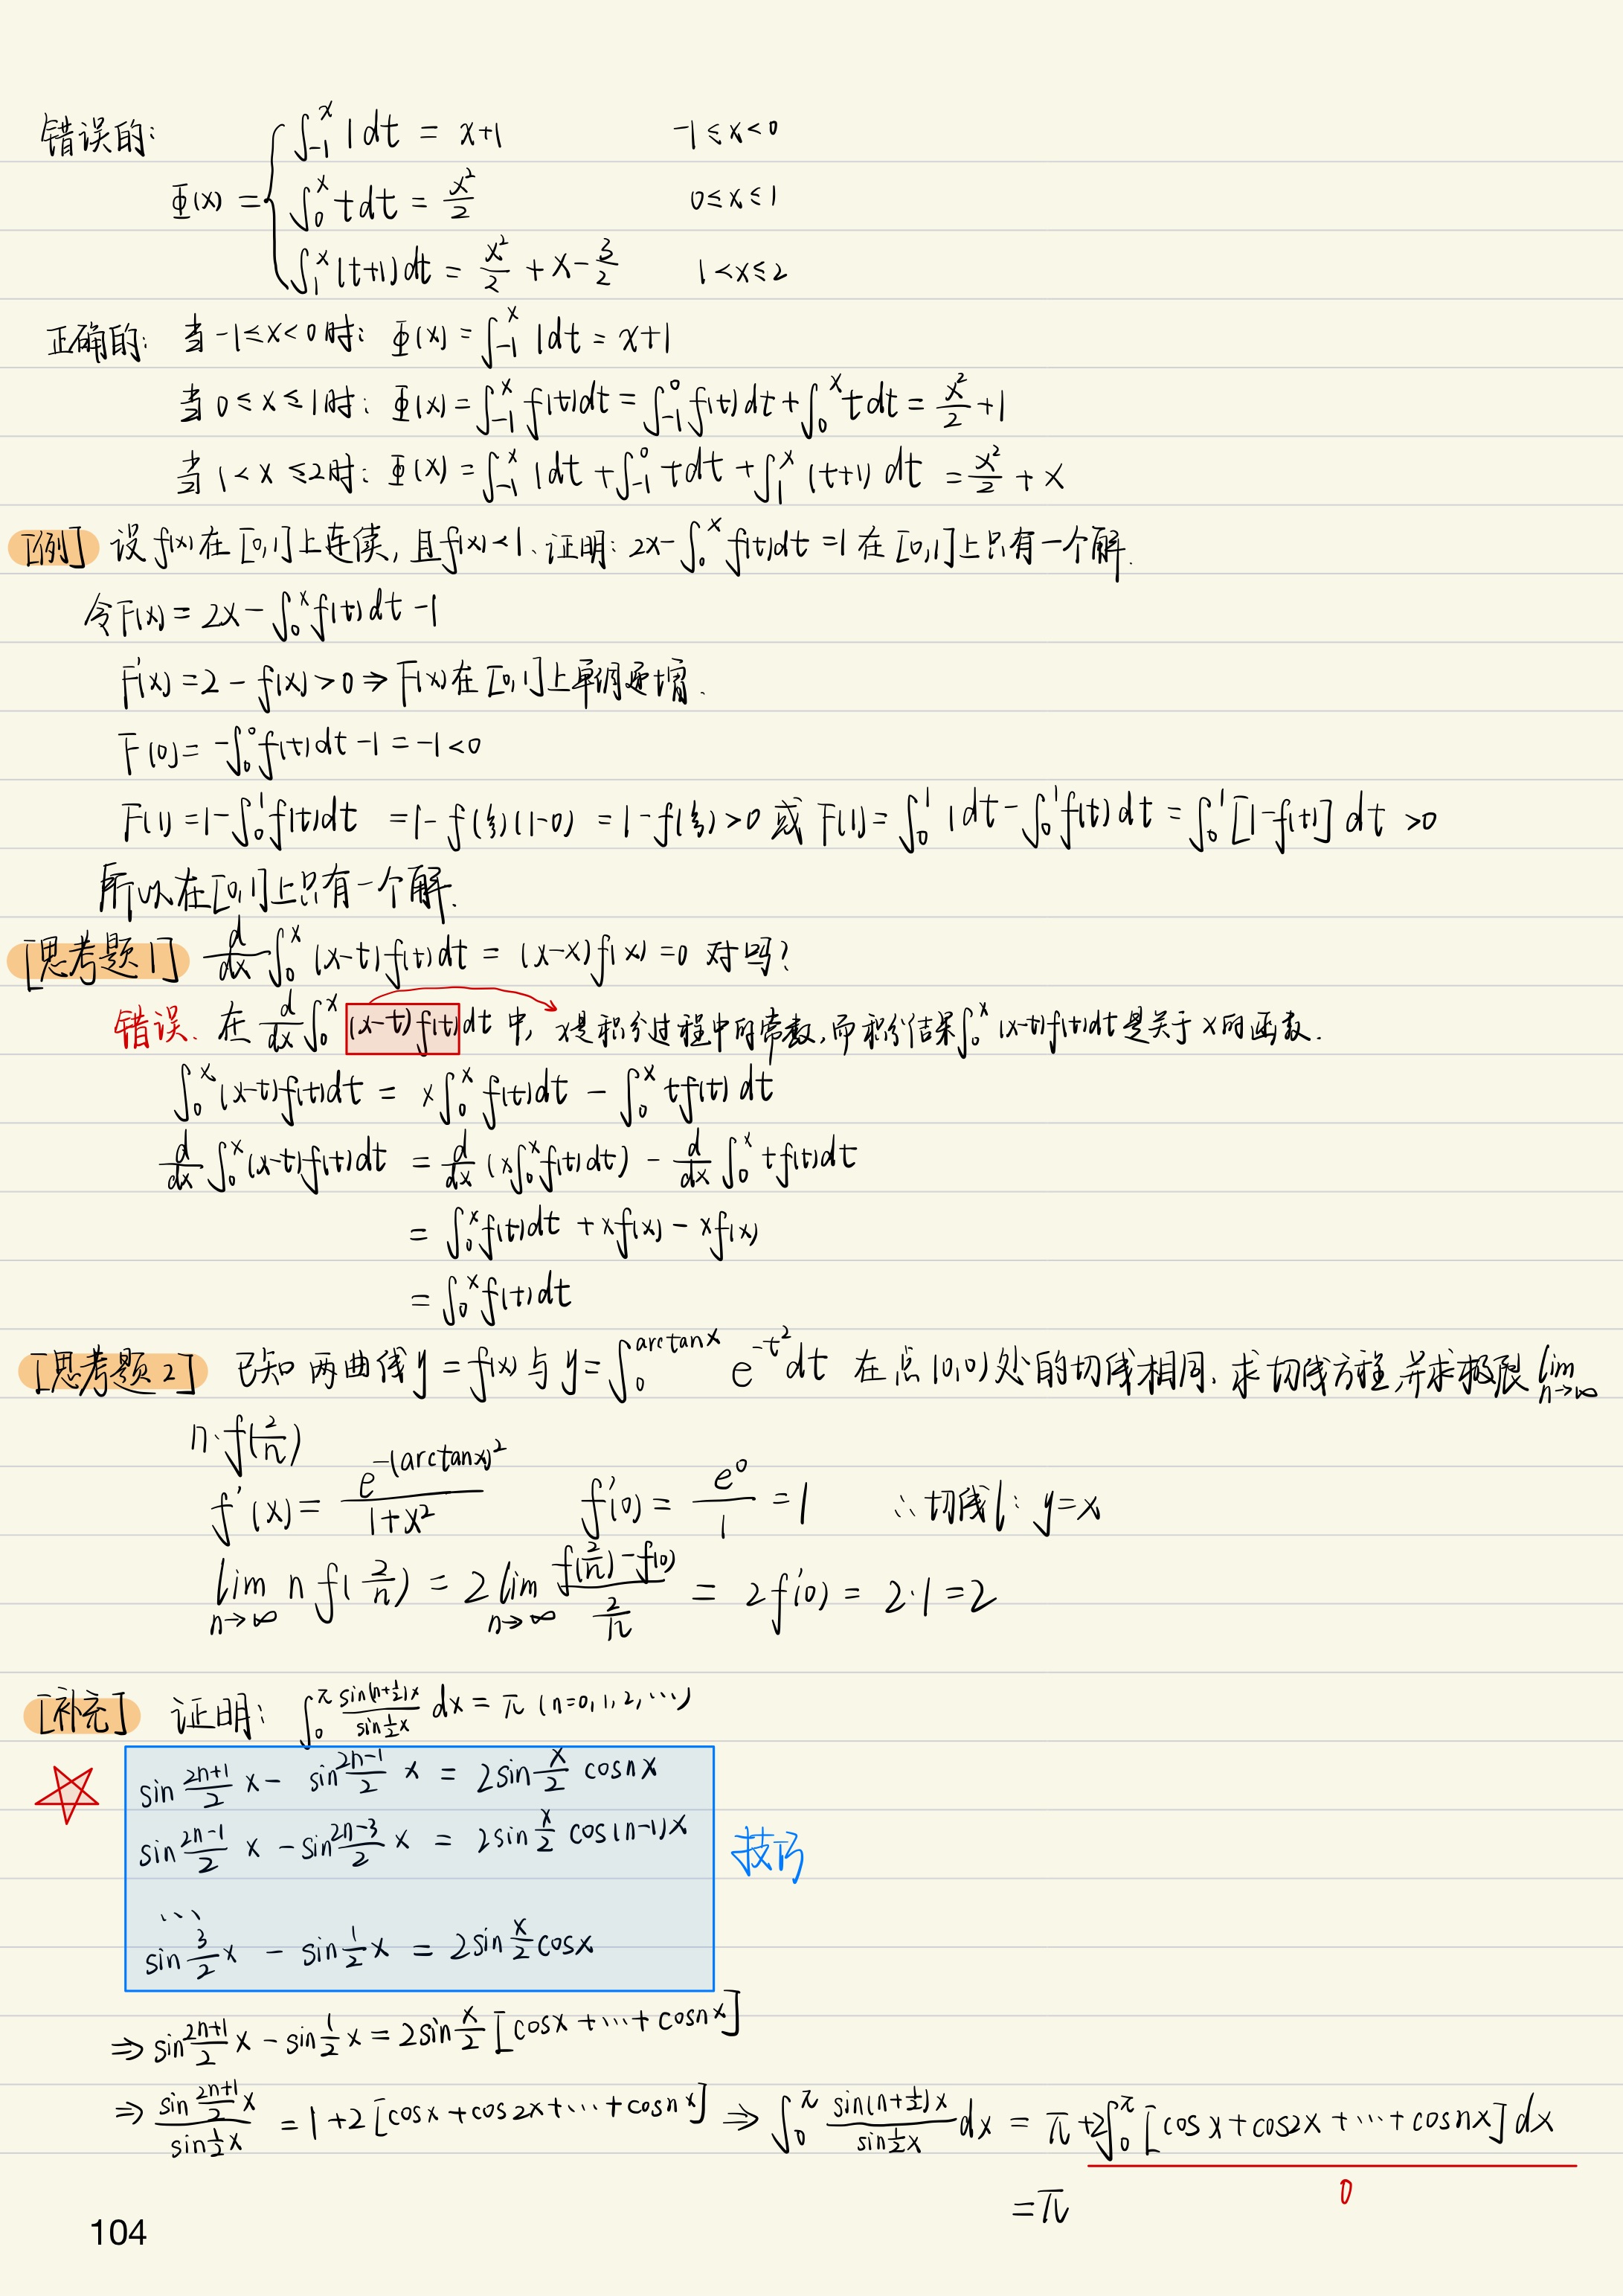 错误的:
Φ(x) = { ∫_{-1}^{x} 1dt = x+1    -1≤x<0
∫_{0}^{x} tdt = x²/2    0≤x≤1
∫_{1}^{x} (t+1)dt = x²/2 + x - 3/2    1<x≤2
正确的: 当 -1≤x<0时: Φ(x) = ∫_{-1}^{x} 1dt = x+1
当 0≤x≤1时: Φ(x) = ∫_{-1}^{x} f(t)dt = ∫_{-1}^{0} f(t)dt + ∫_{0}^{x} tdt = x²/2 + 1
当 1<x≤2时: Φ(x) = ∫_{-1}^{x} 1dt + ∫_{-1}^{0} tdt + ∫_{1}^{x} (t+1)dt = x²/2 + x
[例] 设f(x)在[0,1]上连续, 且f(x)<1. 证明: 2x - ∫_{0}^{x} f(t)dt = 1 在[0,1]上只有一个解.
令F(x) = 2x - ∫_{0}^{x} f(t)dt - 1
F'(x) = 2 - f(x) > 0 ⇒ F(x)在[0,1]上单调递增.
F(0) = -∫_{0}^{0} f(t)dt - 1 = -1 < 0
F(1) = 1 - ∫_{0}^{1} f(t)dt = 1 - f(ξ)(1-0) = 1 - f(ξ) > 0 或 F(1) = ∫_{0}^{1} 1dt - ∫_{0}^{1} f(t)dt = ∫_{0}^{1} [1-f(t)] dt > 0
所以在[0,1]上只有一个解.
[思考题1] d/dx ∫_{0}^{x} (x-t)f(t)dt = (x-x)f(x) = 0 对吗?
错误. 在 d/dx ∫_{0}^{x} (x-t)f(t)dt 中, x是积分过程中的常数, 而积分结果∫_{0}^{x} (x-t)f(t)dt是关于x的函数.
∫_{0}^{x} (x-t)f(t)dt = x∫_{0}^{x} f(t)dt - ∫_{0}^{x} tf(t)dt
d/dx ∫_{0}^{x} (x-t)f(t)dt = d/dx (x∫_{0}^{x} f(t)dt) - d/dx ∫_{0}^{x} tf(t)dt
= ∫_{0}^{x} f(t)dt + xf(x) - xf(x)
= ∫_{0}^{x} f(t)dt
[思考题2] 已知两曲线y=f(x)与y=∫_{0}^{arctanx} e^{-t²}dt 在点(0,0)处的切线相同. 求切线方程, 并求极限 lim_{n→∞}
n·f(2/n)
f'(x) = e^{-(arctanx)²}/(1+x²)    f'(0) = e⁰/1 = 1    ∴切线l: y=x
lim_{n→∞} n f(2/n) = 2 lim_{n→∞} (f(2/n)-f(0))/(2/n) = 2f'(0) = 2·1 = 2
[补充] 证明: ∫_{0}^{π} sin(n+½)x / sin½x dx = π (n=0,1,2,⋯)
sin (2n+1)/2 x - sin (2n-1)/2 x = 2sin x/2 cosnx
sin (2n-1)/2 x - sin (2n-3)/2 x = 2sin x/2 cos(n-1)x
技巧
⋯
sin 3/2 x - sin 1/2 x = 2sin x/2 cosx
⇒ sin (2n+1)/2 x - sin 1/2 x = 2sin x/2 [cosx+⋯+cosnx]
⇒ sin (2n+1)/2 x / sin½x = 1+2[cosx+cos2x+⋯+cosnx] ⇒ ∫_{0}^{π} sin(n+½)x / sin½x dx = π+2∫_{0}^{π} [cosx+cos2x+⋯+cosnx]dx
0
=π
104